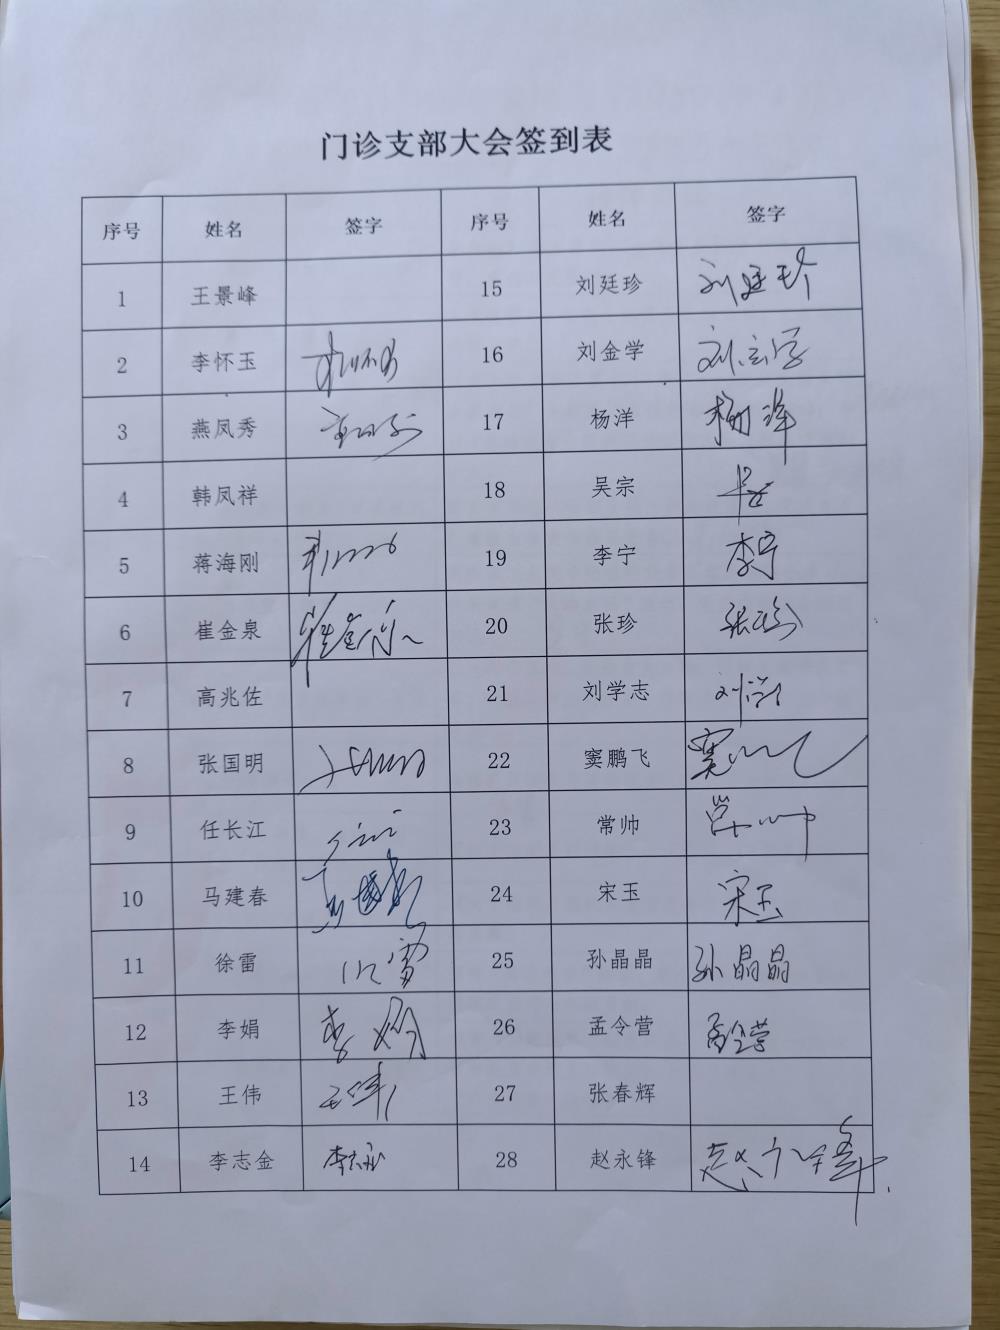 门诊支部大会签到表
序号 姓名 签字 序号 姓名 签字
1 王景峰 15 刘廷珍 刘廷珍
2 李怀玉 李怀玉 16 刘金学 刘金学
3 燕凤秀 17 杨洋 杨洋
4 韩凤祥 18 吴宗
5 蒋海刚 19 李宁 李宁
6 崔金泉 20 张珍 张珍
7 高兆佐 21 刘学志 刘学
8 张国明 22 窦鹏飞 窦
9 任长江 23 常帅 常帅
10 马建春 24 宋玉 宋玉
11 徐雷 雷 25 孙晶晶 孙晶晶
12 李娟 李娟 26 孟令营 孟令营
13 王伟 王伟 27 张春辉
14 李志金 李志金 28 赵永锋 赵永锋